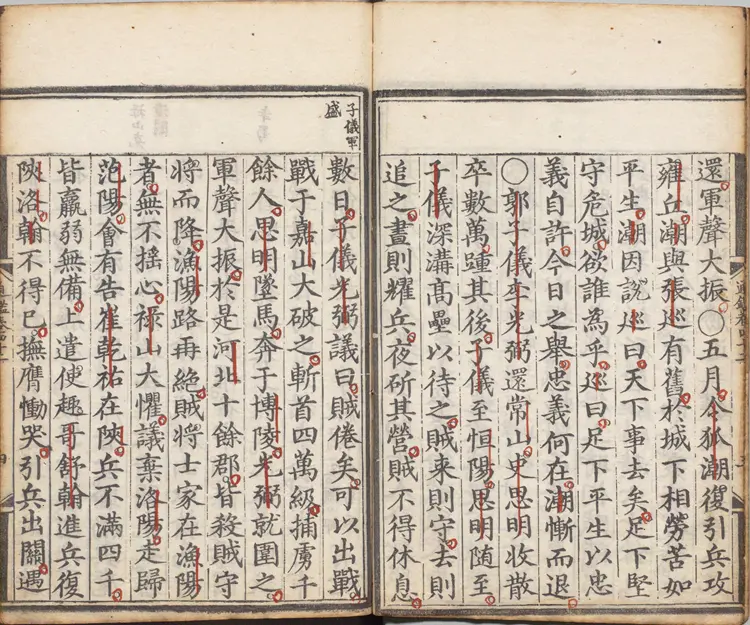 還軍聲大振○五月令狐潮復引兵攻
雍丘潮與張巡有舊於城下相勞苦如
平生潮因說巡曰天下事去矣足下堅
守危城欲誰為乎巡曰足下平生以忠
義自許今日之舉忠義何在潮慚而退
○郭子儀李光弼還常山史思明收散
卒數萬踵其後子儀至恒陽思明随至
子儀深溝高壘以待之賊来則守去則
追之晝則耀兵夜斫其營賊不得休息
子儀軍
盛
數日子儀光弼議曰賊倦矣可以出戰
戰于嘉山大破之斬首四萬級捕虜千
餘人思明墜馬奔于博陵光弼就圍之
軍聲大振於是河北十餘郡皆殺賊守
將而降漁陽路再絕賊將士家在漁陽
者無不搖心祿山大懼議棄洛陽走歸
范陽會有告崔乾祐在陝兵不滿四千
皆羸弱無備上遣使趣哥舒翰進兵復
陝洛翰不得已撫膺慟哭引兵出關遇